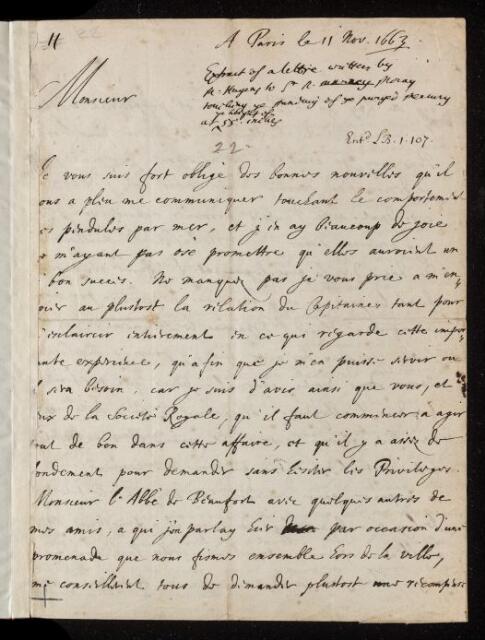 11 22
A Paris le 11 Nov. 1663
Extract of a lettre written by
M. Hugens to Sr R. Moray
touching ye standing of ye purg'd Mercury
ye height of
at 55. inches
Monsieur
Entd LB. 1. 107.
22.
Je vous suis fort obligè des bonnes nouvelles qu'il
ous a pleu me communiquer touchant le comportement
es pendules par mer, et j'en ay beaucoup de joie
e m'ayant pas osè promettre qu'elles auroient un
bon succes. Ne manquez pas je vous prie a m'en-
oier au plustost la relation du Capitaines tant pour
'esclaircir entierement en ce qui regarde cette impor-
ante experience, qu'afin que je m'en puisse servir ou
l sera besoin. car je suis d'avis ainsi que vous, et
eux de la Societè Royale, qu'il faut commencer a agir
out de bon dans cette affaire, et qu'il y a assez de
fondement pour demander sans hesiter les Privileges.
Monsieur l'Abbè de Beaufort avec quelques autres de
mes amis, a qui j'en parlay hier par occasion d'une
promenade que nous fismes ensemble hors de la ville,
me conseillerent tous de demander plustost une recompense